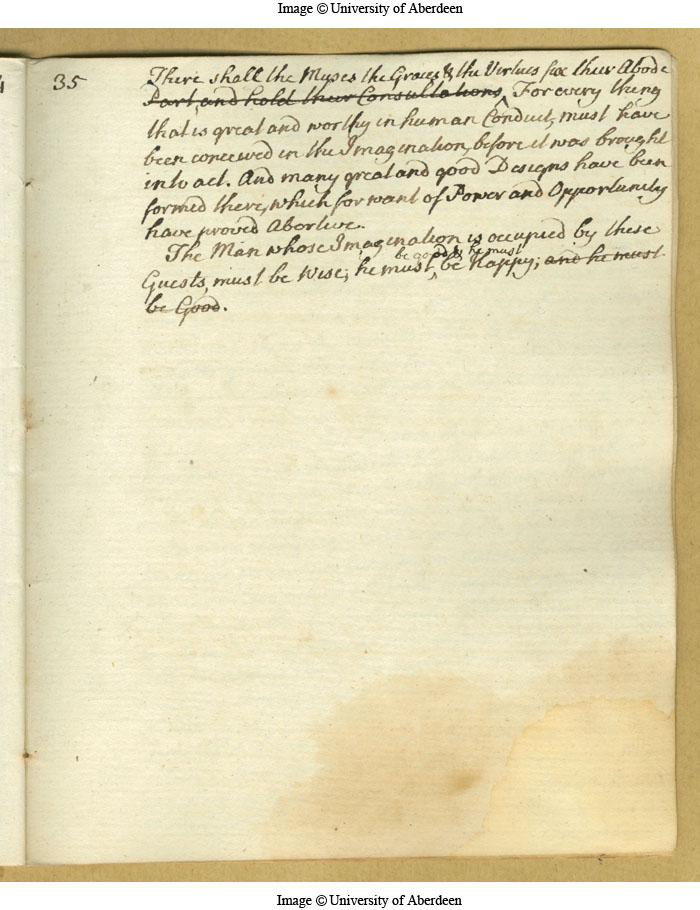 Image © University of Aberdeen
35
There shall the Muses the Graces & the Virtues fix their Abode
Part, and hold their Consultations. For every thing
that is great and worthy in human Conduct, must have
been conceived in the Imagination, before it was brought
into act. And many great and good Designs have been
formed there, which for want of Power and Opportunity
have proved Abortive.
The Man whose Imagination is occupied by these
be good & he must
Guests, must be Wise, he must, be Happy; and he must
be Good.
Image © University of Aberdeen